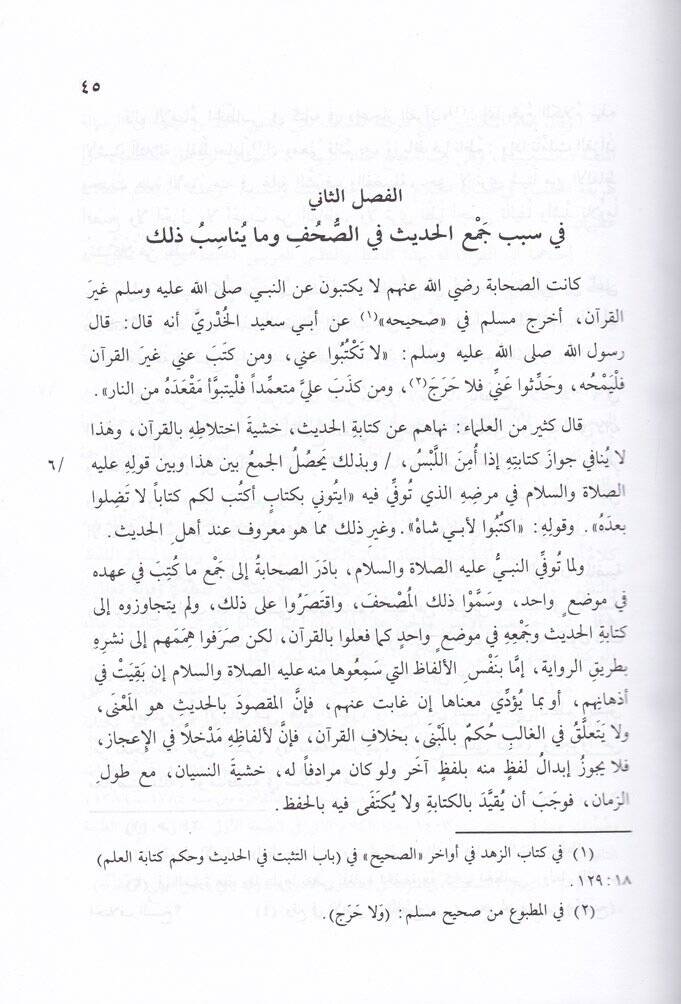 ٤٥
الفصل الثاني
في سبب جَمْع الحديث في الصُّحُف وما يُناسِبُ ذلك
كانت الصحابة رضي الله عنهم لا يكتبون عن النبي صلى الله عليه وسلم غيرَ
القرآن، أخرج مسلم في «صحيحه»(١) عن أبي سعيد الخُدْريَّ أنه قال: قال
رسول الله صلى الله عليه وسلم: «لا تَكْتُبُوا عني، ومن كتَبَ عني غيرَ القرآن
فلْيَمْحُه، وحَدِّثوا عَنيِّ فلا حَرَجَ(٢)، ومن كذَبَ عليَّ متعمِّداً فلْيتبوَّأ مَقْعَدَهُ من النار».
قال كثير من العلماء: نهاهم عن كتابة الحديث، خشيةَ اختلاطِهِ بالقرآن، وهذا
لا يُنافي جوازَ كتابتِهِ إذا أُمِنَ اللَّبْسُ، / وبذلك يَحصُلُ الجمعُ بين هذا وبين قولِهِ عليه ٦/
الصلاة والسلام في مرضِهِ الذي تُوفِّي فيه «ايتُوني بكتابٍ أكتُب لكم كتاباً لا تَضِلوا
بعدَهُ». وقولِهِ: «اكتُبُوا لأبي شاهْ». وغيرِ ذلك مما هو معروف عند أهل الحديث.
ولما تُوفِّي النبيُّ عليه الصلاة والسلام، بادَرَ الصحابةُ إلى جَمْعِ ما كُتِبَ في عهده
في موضعٍ واحد، وسَمَّوْا ذلك المُصْحَفَ، واقتَصَرُوا على ذلك، ولم يتجاوزوه إلى
كتابةِ الحديث وجَمْعِهِ في موضعٍ واحدٍ كما فعلوا بالقرآن، لكن صَرَفوا هِمَمَهم إلى نشرِهِ
بطريقِ الرواية، إمَّا بنَفْسِ الألفاظ التي سَمِعُوها منه عليه الصلاة والسلام إن بَقِيَتْ في
أذهانِهم، أو بما يُؤدِّي معناها إن غابت عنهم، فإنَّ المقصودَ بالحديثِ هو المَعْنَى،
ولا يَتعلَّقُ في الغالبِ حُكمٌ بالمَبْنَى، بخلافِ القرآن، فإنَّ لألفاظِهِ مَدْخلاً في الإعجاز،
فلا يجوزُ إبدالُ لفظٍ منه بلفظٍ آخَر ولو كان مرادفاً له، خشيةَ النسيان، مع طولِ
الزمان، فوجَبَ أن يُقيَّدَ بالكتابةِ ولا يُكتَفَى فيه بالحفظ.
(١) في كتاب الزهد في أواخر «الصحيح» في (باب التثبت في الحديث وحكم كتابة العلم)
١٨ : ١٢٩.
(٢) في المطبوع من صحيح مسلم: (وَلا حَرَج).